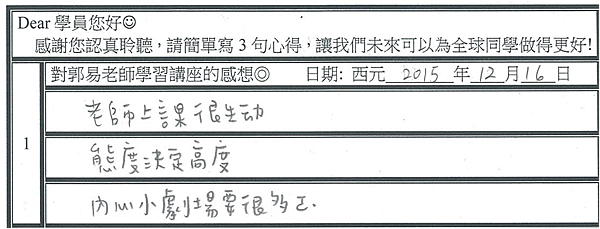 Dear 學員您好☺
感謝您認真聆聽，請簡單寫 3 句心得，讓我們未來可以為全球同學做得更好!
1
對郭易老師學習講座的感想◎ 日期: 西元 2015 年 12 月 16 日
老師上課很生动
態度決定高度
內心小劇場要很夠正.